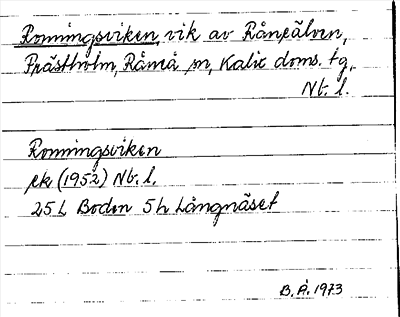 Ronningsviken, vik av Råneälven,
Prästholm, Råneå sn, Kalix doms. tg,
Nb. l.
Ronningsviken
ek (1952) Nb. l.
25 L Boden 5h Långnäset
B. Å. 1973